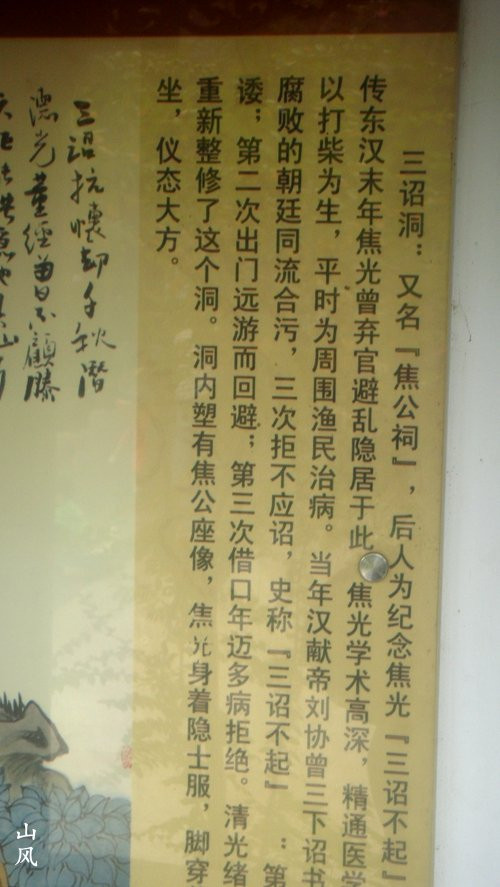 三诏洞：又名『焦公祠』，后人为纪念焦光『三诏不起』
传东汉末年焦光曾弃官避乱隐居于此 焦光学术高深，精通医学
以打柴为生，平时为周围渔民治病。当年汉献帝刘协曾三下诏书
腐败的朝廷同流合污，三次拒不应诏，史称『三诏不起』：第
诿；第二次出门远游而回避；第三次借口年迈多病拒绝。清光绪
重新整修了这个洞。洞内塑有焦公座像，焦光身着隐士服，脚穿
坐，仪态大方。
三诏抗怀却千秋潜
德光董经曾日不顾滕
山风